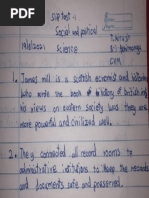 Slip test -1
Social and political
19/8/2021
Science
1. James mill is a scottish economist and
who wrote the book of history of british
his views on eastern society was they are
more powerful and civilized well.
2. They connected all record rooms to
administrative institutions to keep the records
and documents safe and preserved.